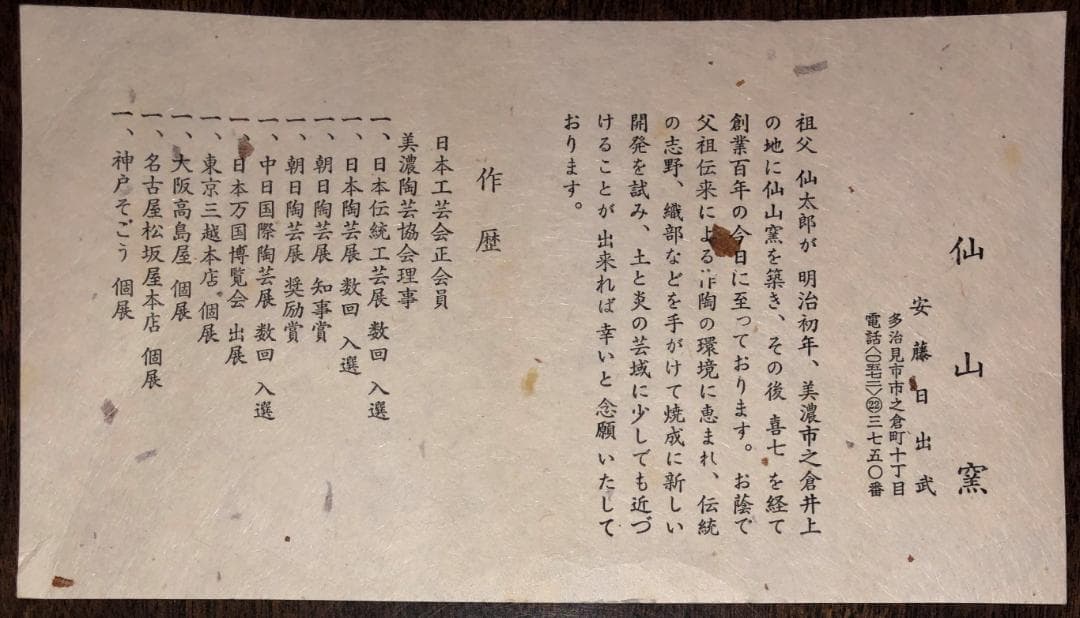 仙山窯
安藤日出武
多治見市市之倉町十丁目
電話〈〇五七二〉㉒三七五〇番
祖父 仙太郎が 明治初年、美濃市之倉井上
の地に仙山窯を築き、その後 喜七 を経て
創業百年の今日に至っております。お蔭で
父祖伝来による作陶の環境に恵まれ、伝統
の志野、織部などを手がけて焼成に新しい
開発を試み、土と炎の芸域に少しでも近づ
けることが 出来れば 幸いと 念願いたして
おります。
作歴
日本工芸会正会員
美濃陶芸協会理事
一、日本伝統工芸展 数回 入選
一、日本陶芸展 数回 入選
一、朝日陶芸展 知事賞
一、朝日陶芸展 奨励賞
一、中日国際陶芸展 数回 入選
一、日本万国博覧会 出展
一、東京三越本店 個展
一、大阪高島屋 個展
一、名古屋松坂屋本店 個展
一、神戸そごう 個展